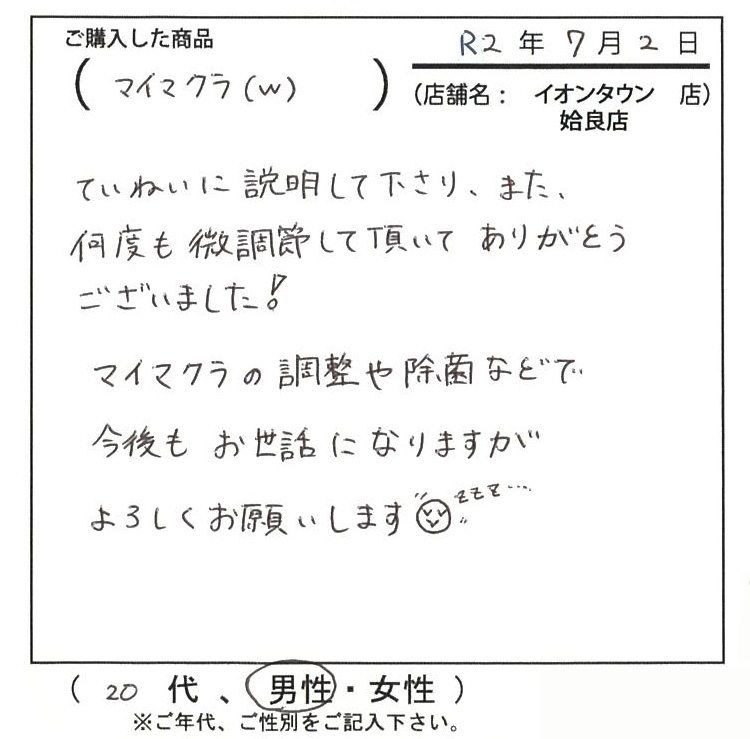 ご購入した商品
(マイマクラ(W))
R2年7月2日
(店舗名： イオンタウン 店)
姶良店
ていねいに説明して下さり、また、
何度も微調節して頂いて ありがとう
ございました!
マイマクラの調整や除菌などで
今後も お世話になりますが
よろしくお願いします
zzz…
( 20 代 、 男性・女性 )
※ご年代、ご性別をご記入下さい。